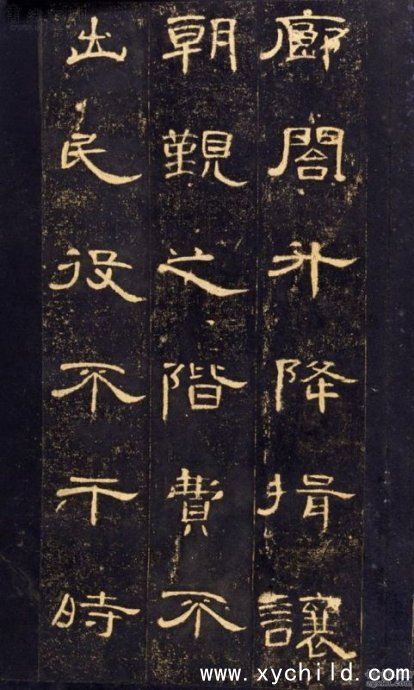 廊閤升降揖讓
朝覲之階費不
出民役不干時
www.xychild.com